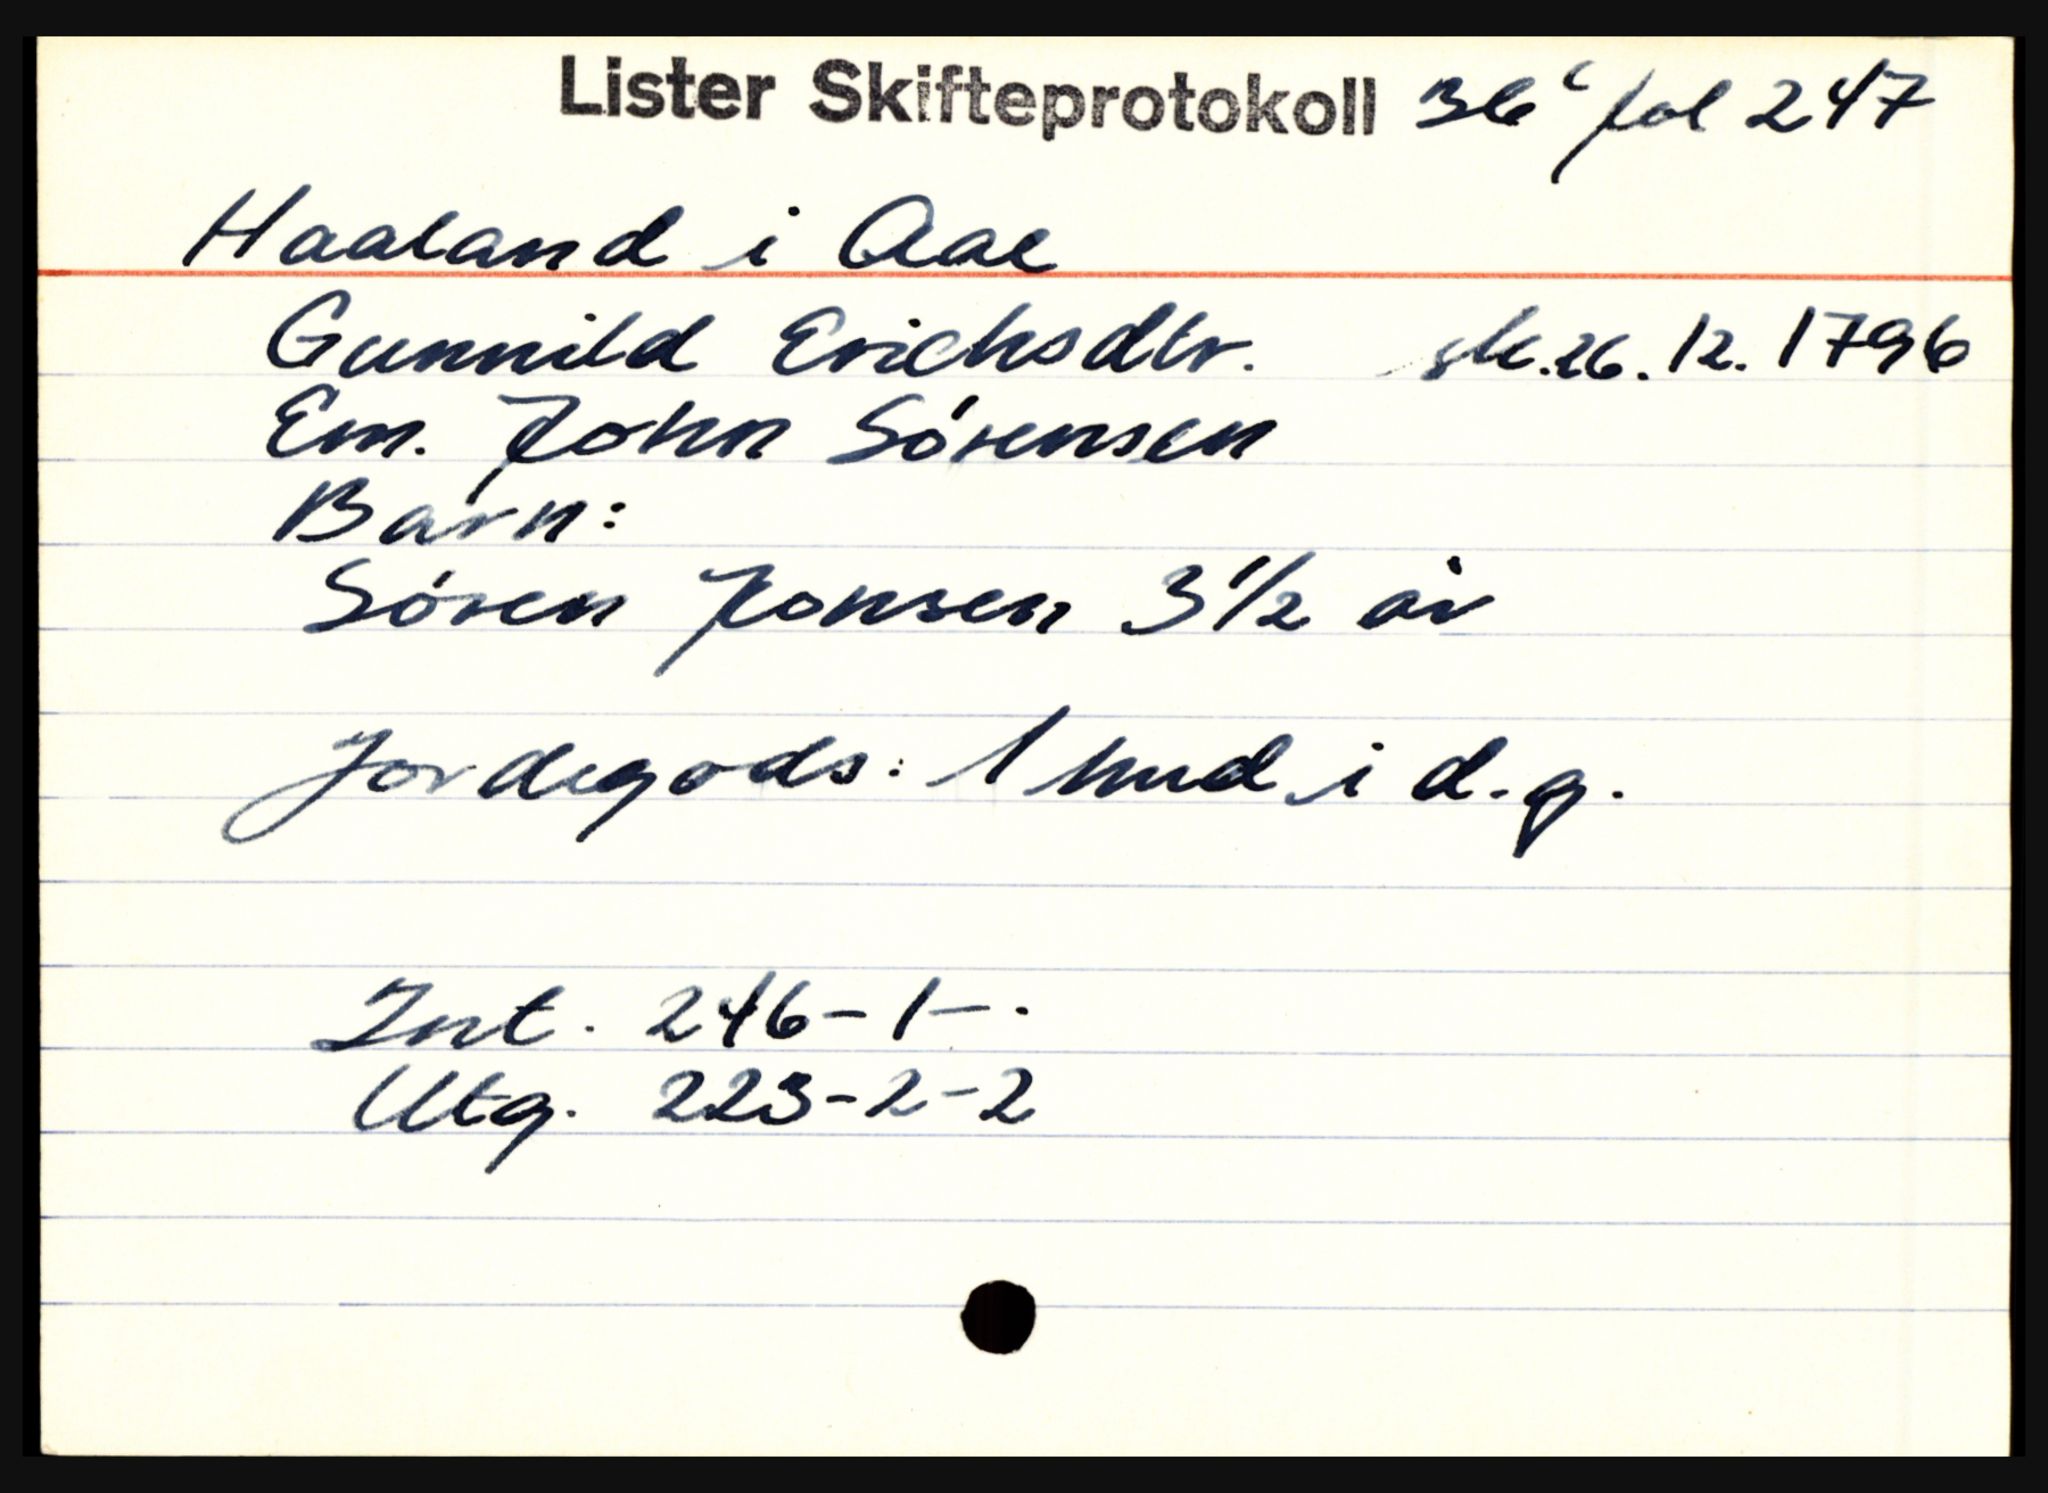 Lister Skifteprotokoll 36c fol 247
Haaland i Aae
Gunnild Erichsdtr. sk. 26. 12. 1796
Em. John Sórensen
Barn:
Sóren Jonsen 3 1/2 år
Jordegods: 1 hud i d.g.
Int. 246-1-.
Utg. 223-2-2